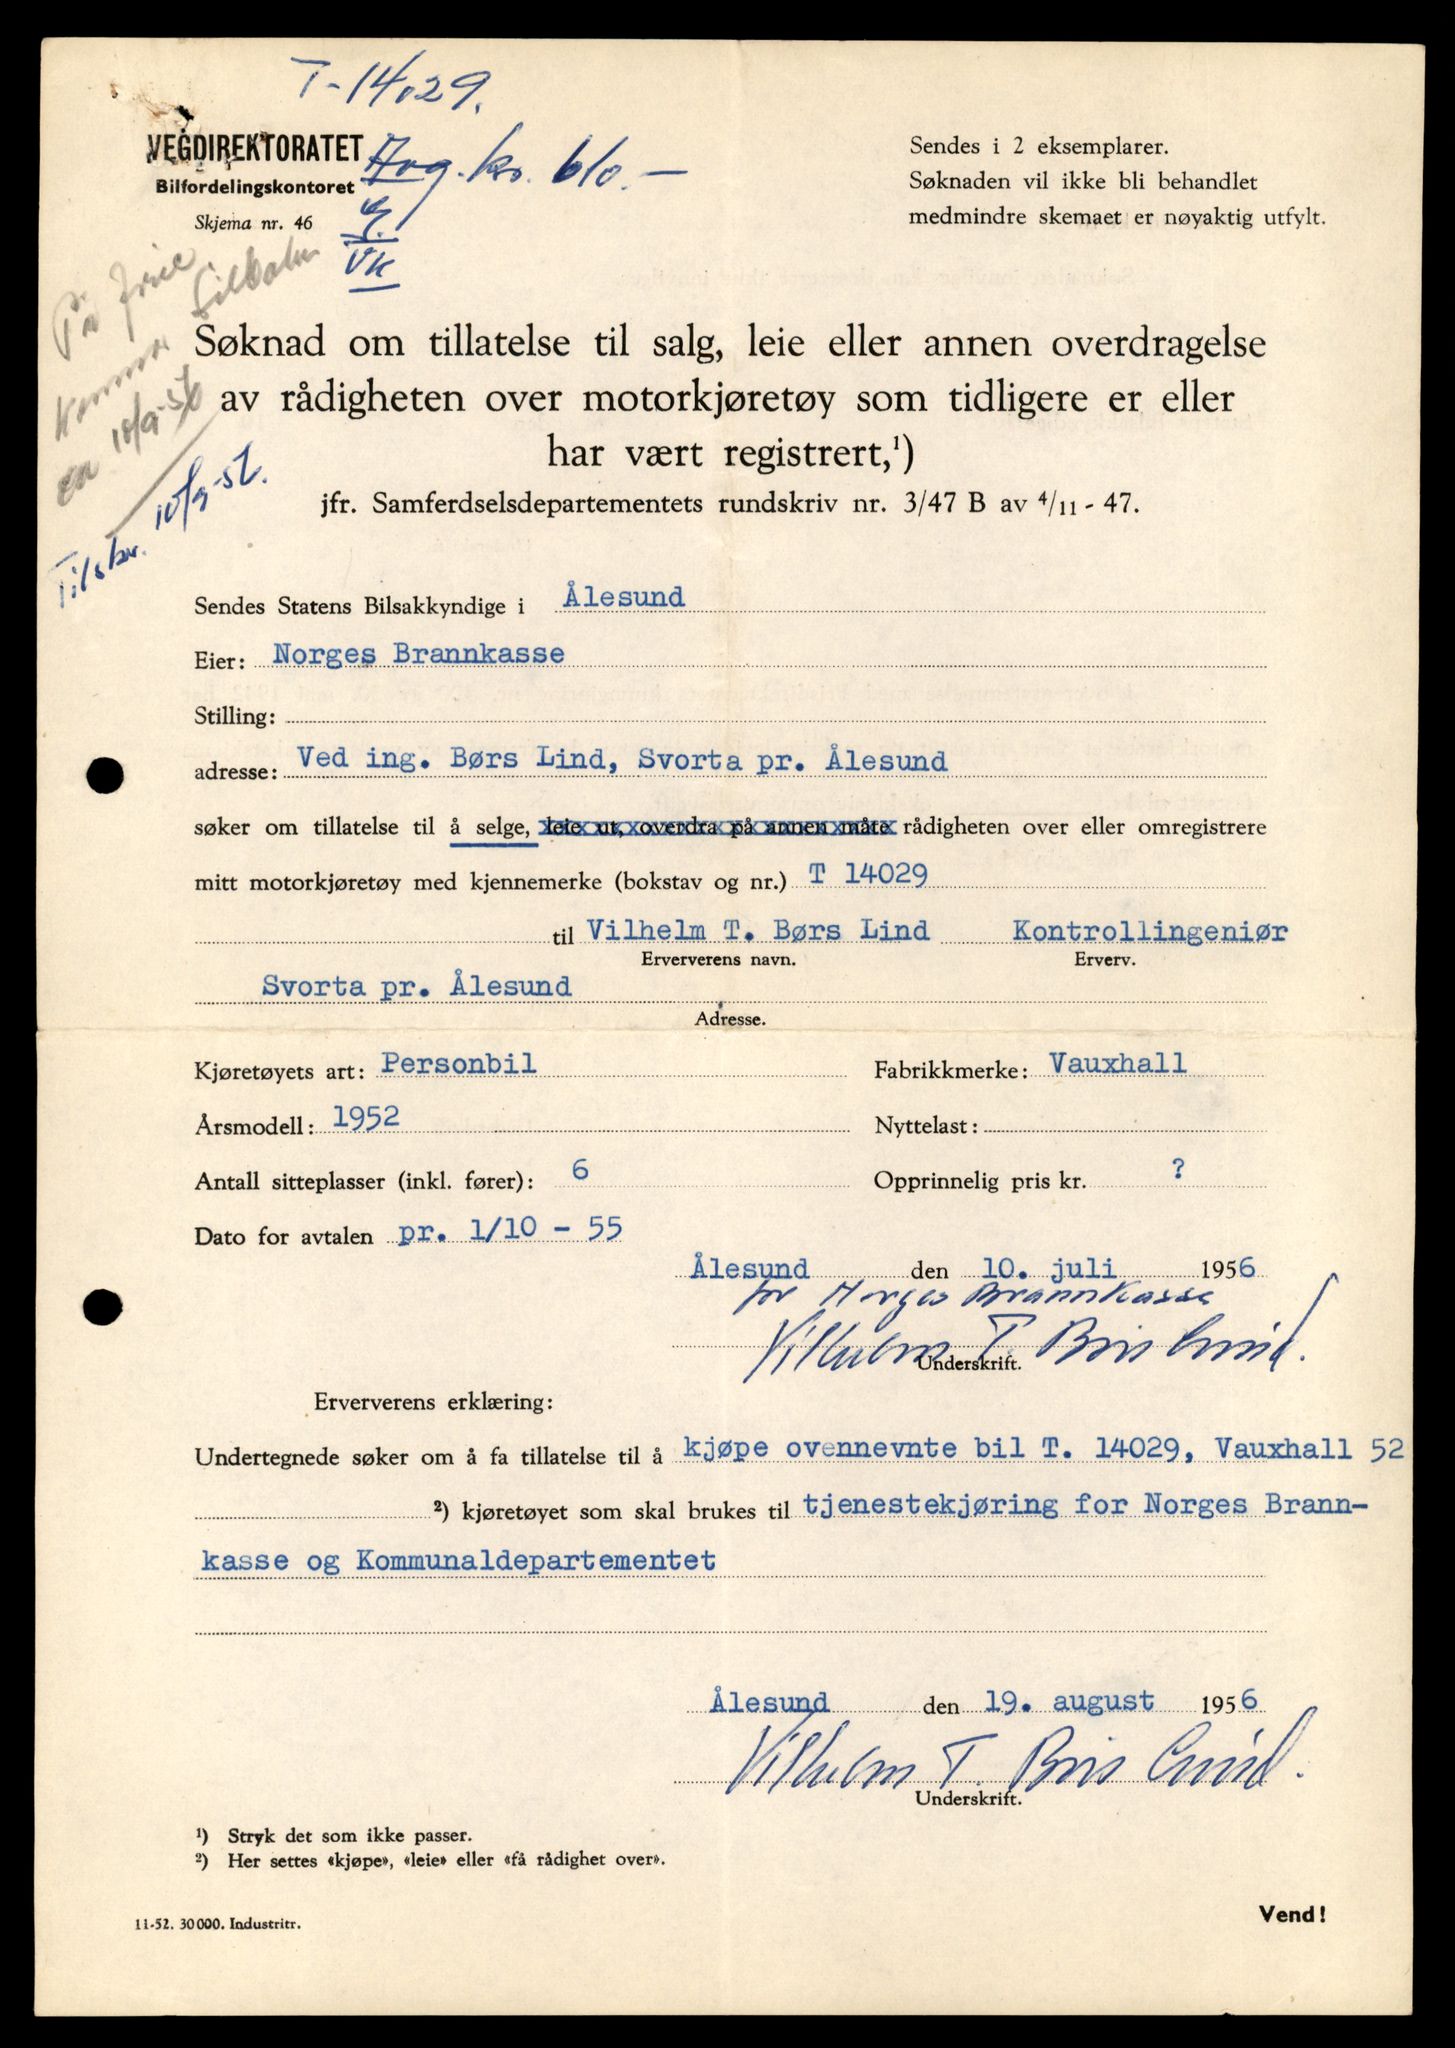 T-14029.
VEGDIREKTORATET
Bilfordelingskontoret
Skjema nr. 46
Avg. kr. 610.-
VK
Sendes i 2 eksemplarer.
Søknaden vil ikke bli behandlet
medmindre skemaet er nøyaktig utfylt.
På
10/9-56
Tilskr. 10/9-56.
Søknad om tillatelse til salg, leie eller annen overdragelse
av rådigheten over motorkjøretøy som tidligere er eller
har vært registrert,¹)
jfr. Samferdselsdepartementets rundskriv nr. 3/47 B av 4/11 - 47.
Sendes Statens Bilsakkyndige i Ålesund
Eier: Norges Brannkasse
Stilling:
adresse: Ved ing. Børs Lind, Svorta pr. Ålesund
søker om tillatelse til å selge, leie ut, overdra på annen måte rådigheten over eller omregistrere
mitt motorkjøretøy med kjennemerke (bokstav og nr.) T 14029
til Vilhelm T. Børs Lind Kontrollingeniør
Erververens navn. Erverv.
Svorta pr. Ålesund
Adresse.
Kjøretøyets art: Personbil Fabrikkmerke: Vauxhall
Årsmodell: 1952 Nyttelast:
Antall sitteplasser (inkl. fører): 6 Opprinnelig pris kr. ?
Dato for avtalen pr. 1/10 - 55
Ålesund den 10. juli 1956
for Norges Brannkasse
Vilhelm T. Børs Lind.
Underskrift.
Erververens erklæring:
Undertegnede søker om å fa tillatelse til å kjøpe ovennevnte bil T. 14029, Vauxhall 52
²) kjøretøyet som skal brukes til tjenestekjøring for Norges Brann-
kasse og Kommunaldepartementet
Ålesund den 19. august 1956
Vilhelm T. Børs Lind.
Underskrift.
¹) Stryk det som ikke passer.
²) Her settes «kjøpe», «leie» eller «få rådighet over».
11-52. 30 000. Industritr.
Vend!